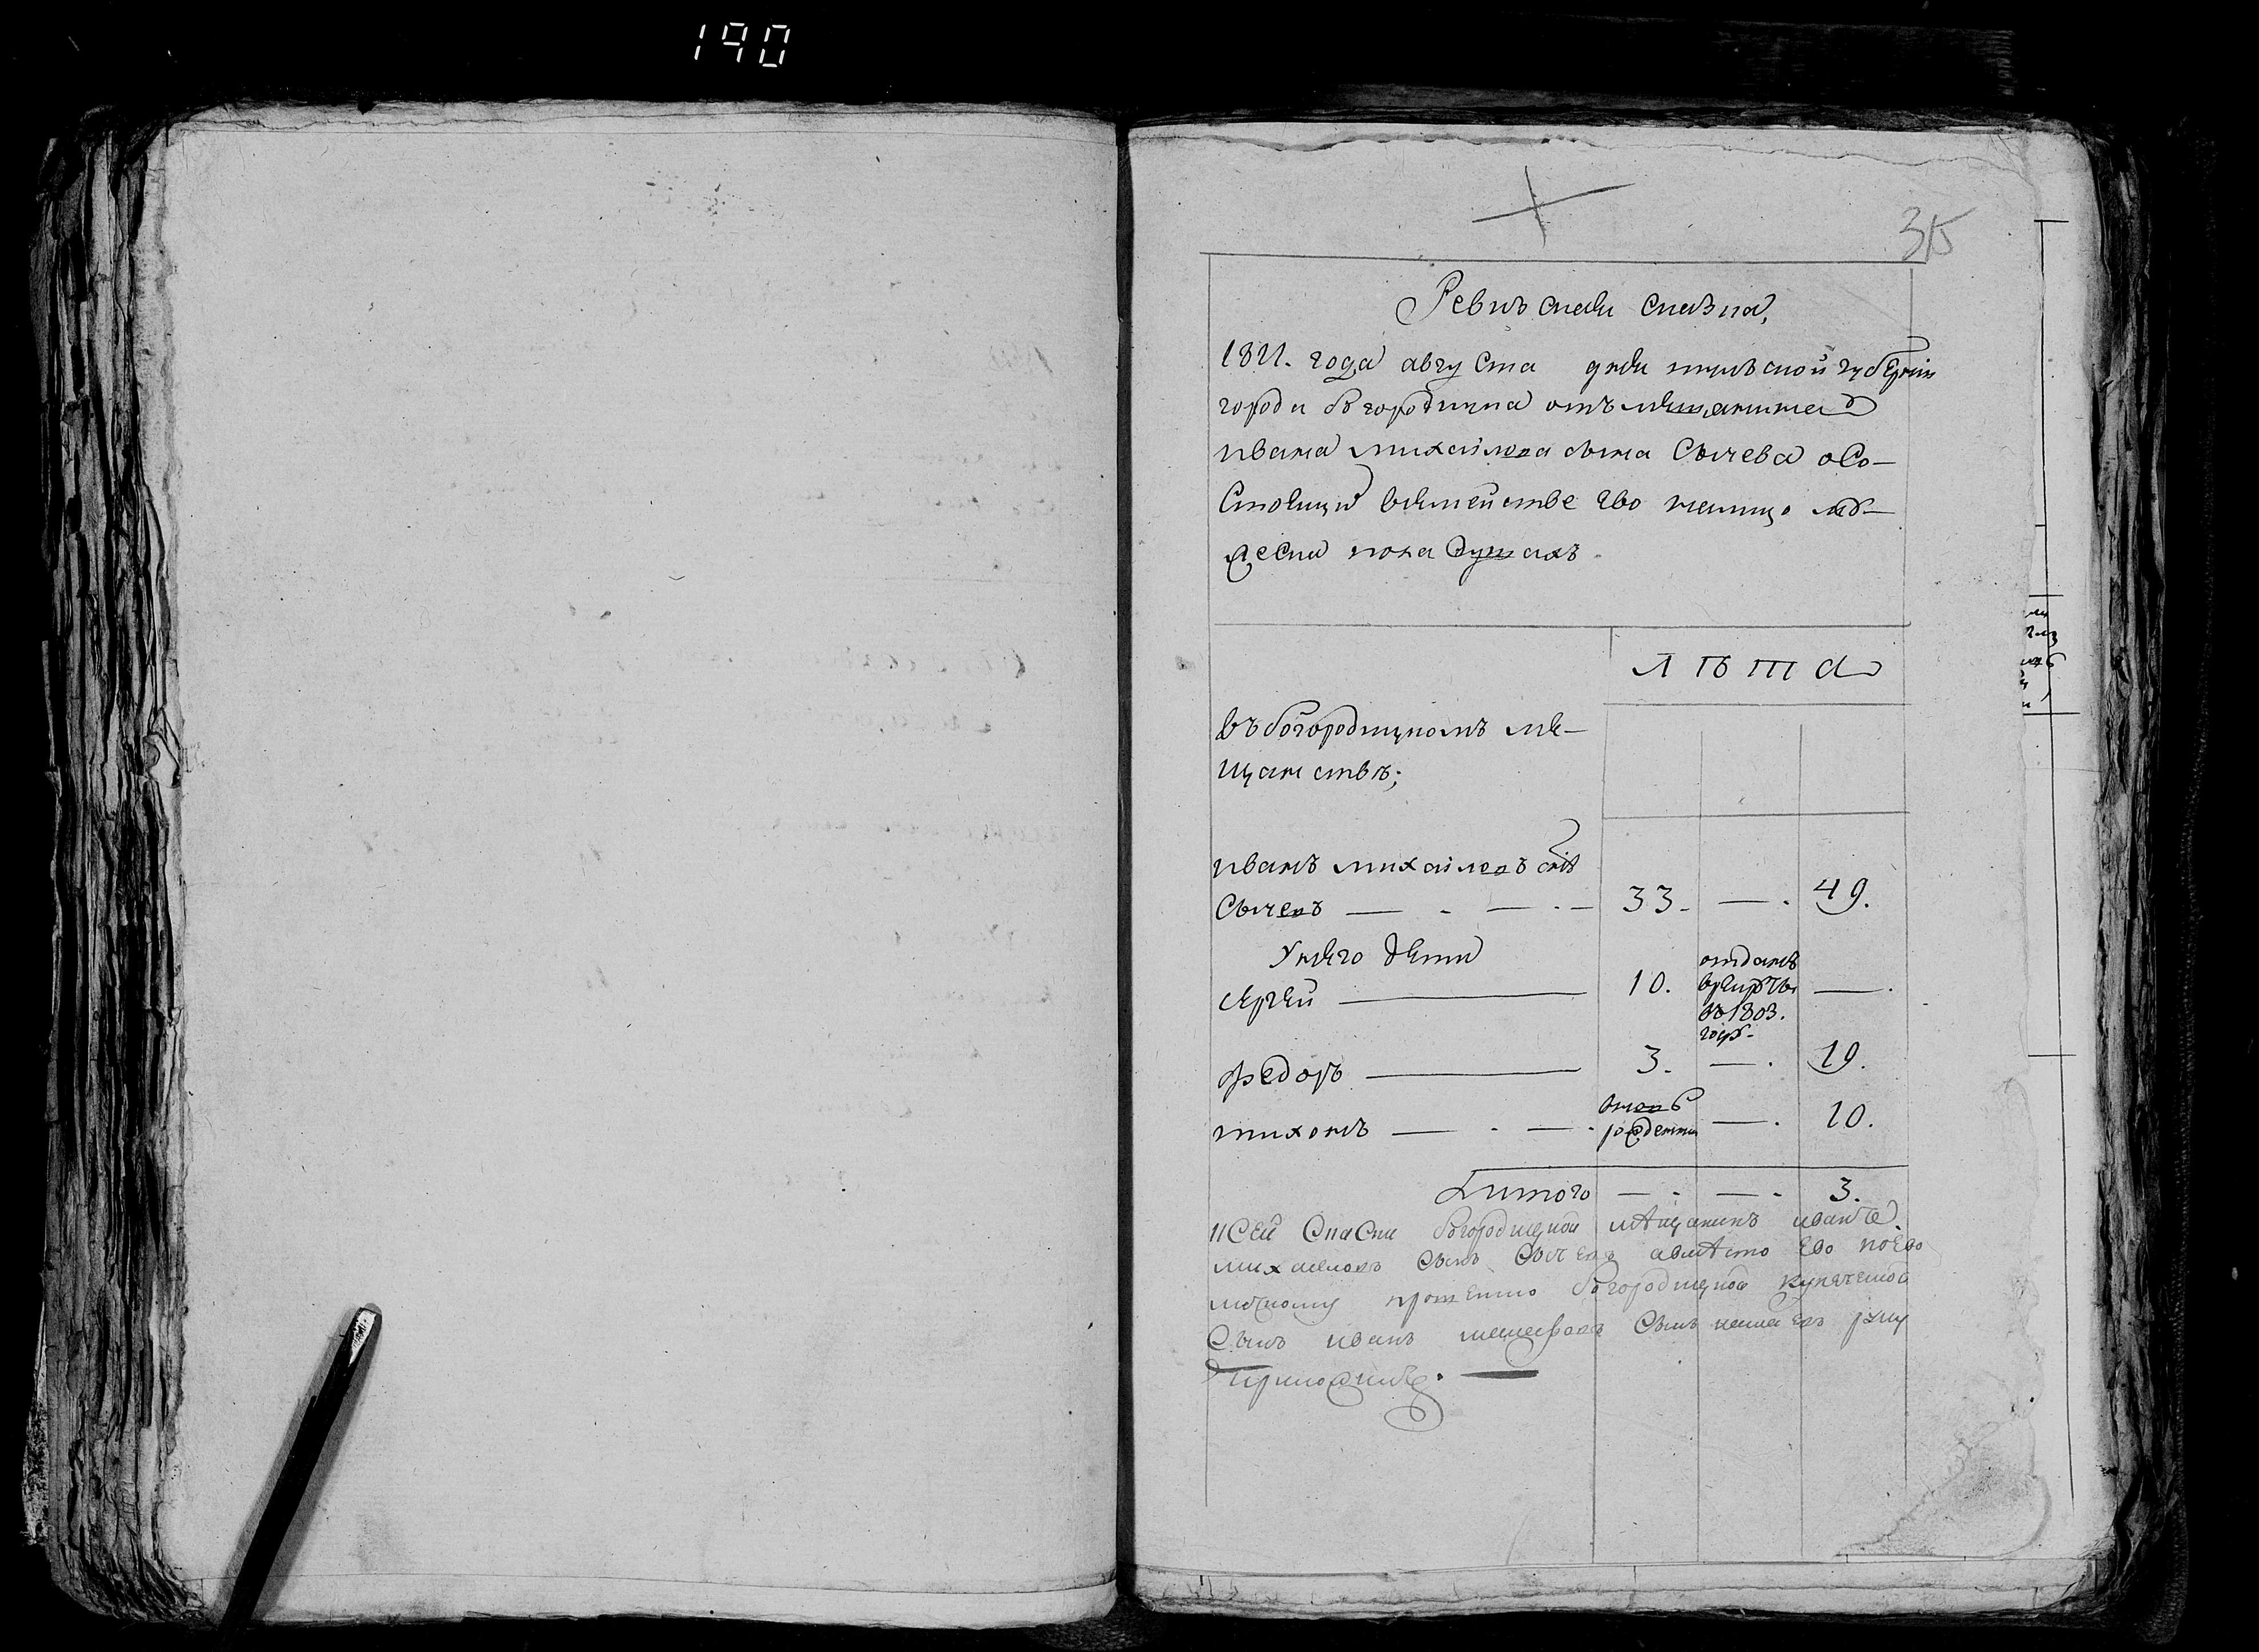 190
315
Ревизская сказка,
1811. года августа дня тульской губернии
города богородицка отъ мещанина
ивана михайлова сына Сычева о Со-
Стоящих в семействе ево
душахъ
лѣта
въ богородицкомъ ме-
щанствѣ;
иванъ михайловъ снъ
Сычевъ — - — - — 33. — . 49.
У него дети
сергей — 10. отданъ
в рекруты — .
въ 1803.
году.
федоръ — 3. — . 19.
тихонъ — - — . рожденъ — . 10.
Итого — - — - 3.
К Сей Скаски богородицкой мещанинъ иванъ
михаиловъ Сынъ Сычевъ а вместо ево по ево
прошению богородицкой купеческой
Сынъ иванъ Сынъ руку
приложилъ. —